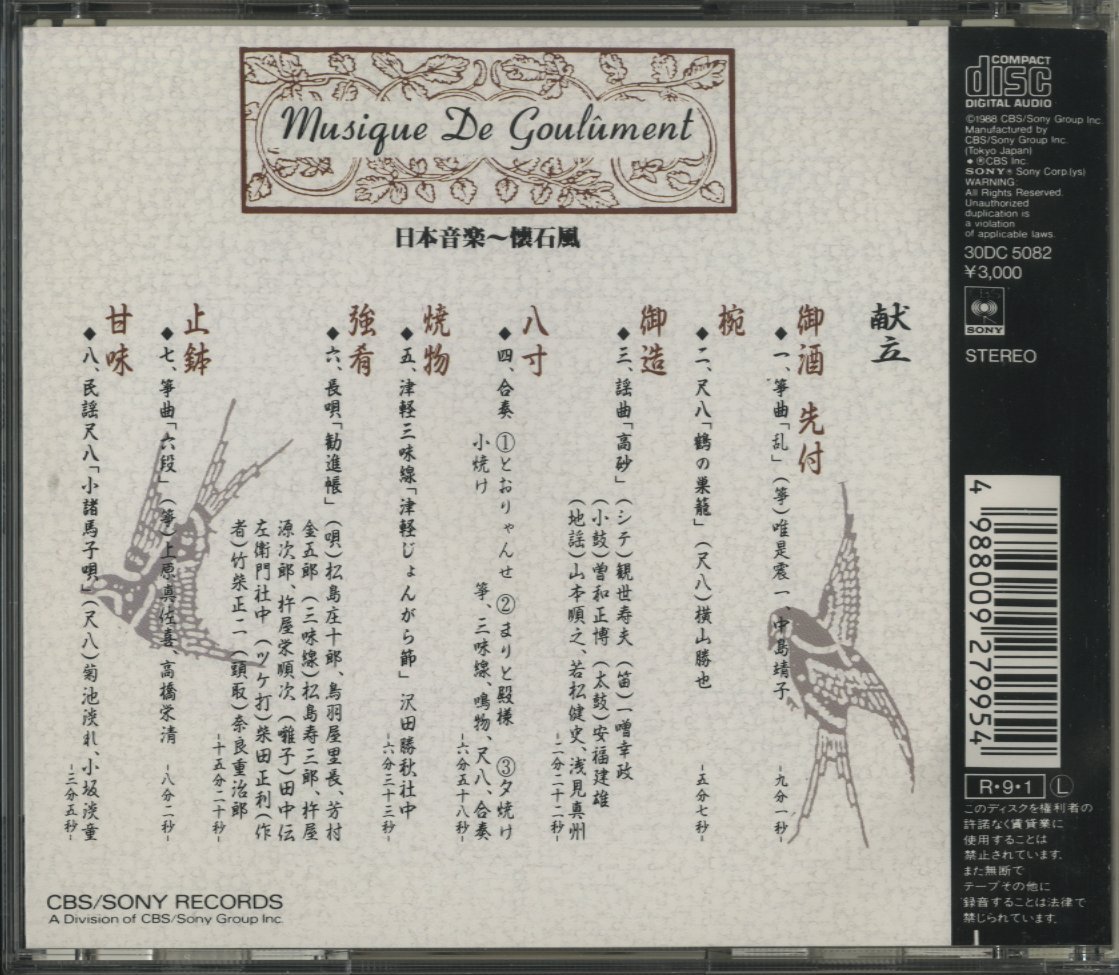 Musique De Goulûment
日本音楽〜懐石風
献立
御酒 先付
◆一、箏曲「乱」(箏)唯是震一、中島靖子 -九分一秒-
椀
◆二、尺八「鶴の巣籠」(尺八)横山勝也 -五分七秒-
御造
◆三、謡曲「高砂」(シテ)観世寿夫 (笛)一噌幸政
(小鼓)曽和正博 (太鼓)安福建雄
(地謡)山本順之、若松健史、浅見真州
-二分二十二秒-
八寸
◆四、合奏 ①とおりゃんせ ②まりと殿様 ③夕焼け
小焼け 箏、三味線、鳴物、尺八、合奏
-六分五十八秒-
焼物
◆五、津軽三味線「津軽じょんがら節」 沢田勝秋社中
-六分三十三秒-
強肴
◆六、長唄「勧進帳」(唄)松島庄十郎、鳥羽屋里長、芳村
金五郎 (三味線)松島寿三郎、杵屋
源次郎、杵屋栄順次 (囃子)田中伝
左衛門社中 (ツケ打)柴田正利(作
者)竹柴正二(頭取)奈良重治郎
-十五分二十秒-
止鉢
◆七、箏曲「六段」(箏)上原真佐喜、高橋栄清 -八分二秒-
甘味
◆八、民謡尺八「小諸馬子唄」(尺八)菊池淡水、小坂淡童
-三分五秒-
CBS/SONY RECORDS
A Division of CBS/Sony Group Inc.
COMPACT
disc
DIGITAL AUDIO
©1988 CBS/Sony Group Inc.
Manufactured by
CBS/Sony Group Inc.
(Tokyo Japan)
◆ ℗CBS Inc.
SONY® Sony Corp.(ys)
WARNING:
All Rights Reserved.
Unauthorized
duplication is
a violation
of applicable laws.
30DC 5082
¥3,000
SONY
STEREO
4 988009 279954
R・9・1 Ⓛ
このディスクを権利者の
許諾なく賃貸業に
使用することは
禁止されています。
また無断で
テープその他に
録音することは法律で
禁じられています。